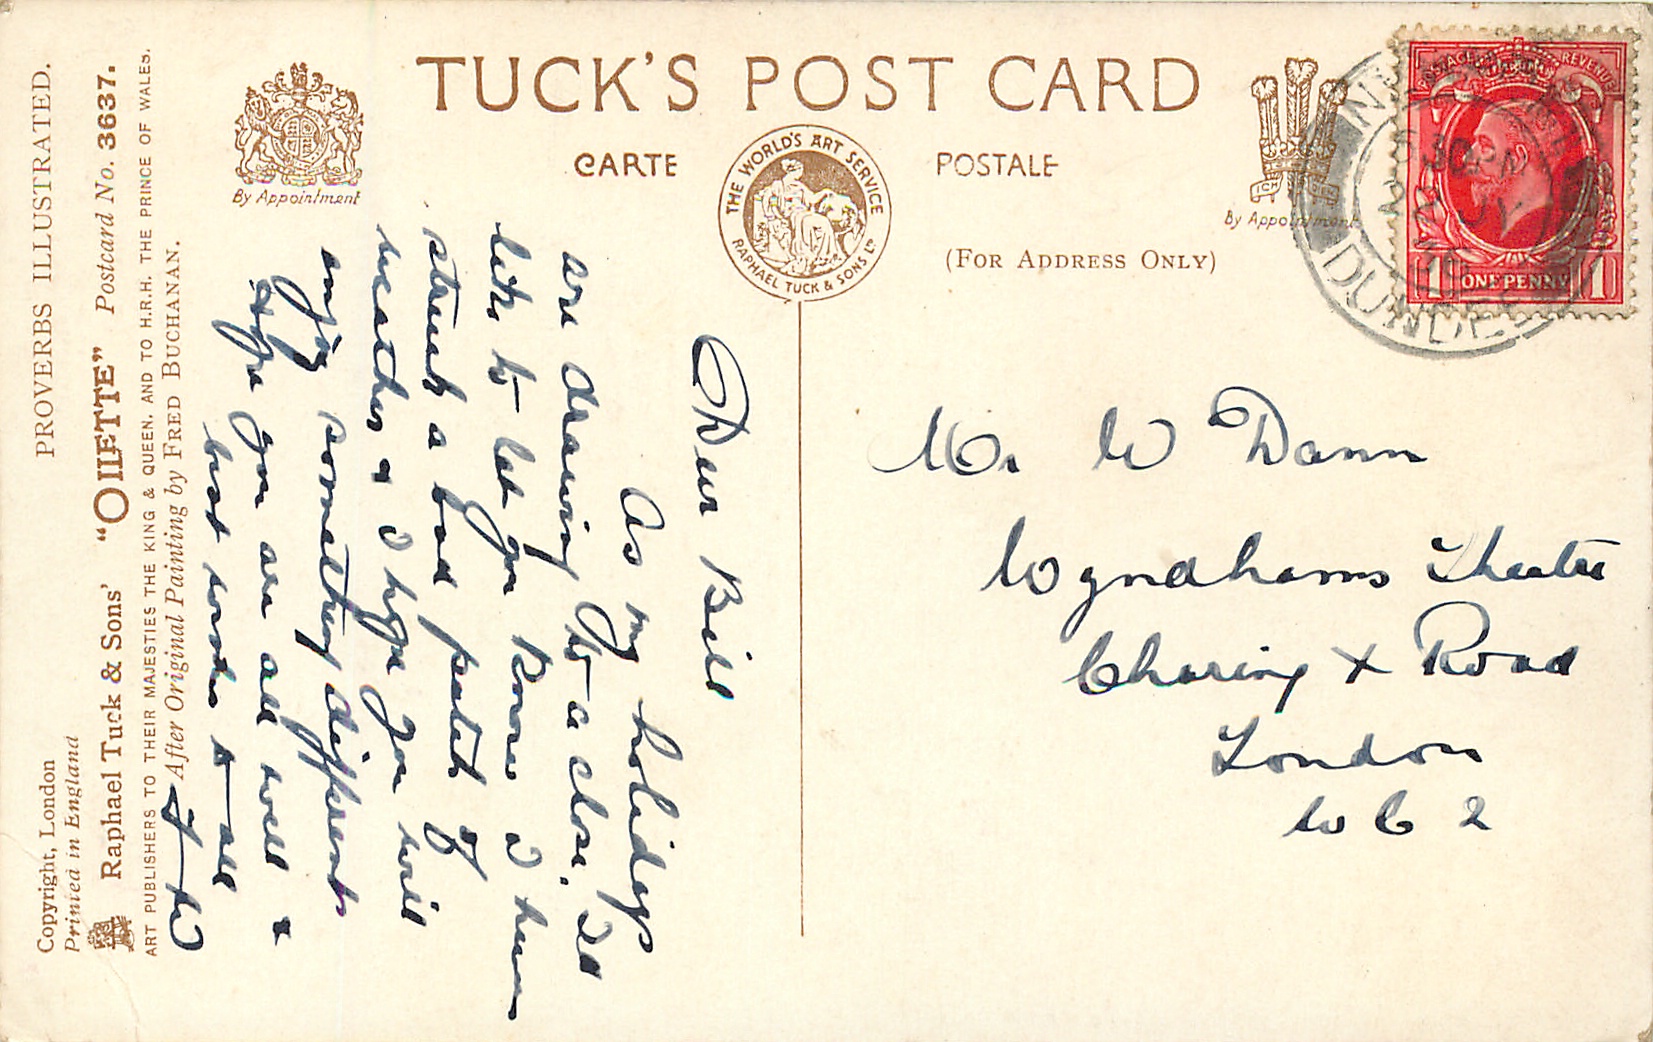 TUCK'S POST CARD
CARTE POSTALE
(FOR ADDRESS ONLY)
THE WORLD'S ART SERVICE
RAPHAEL TUCK & SONS LTD
By Appointment
By Appointment
ICH DIEN
POSTAGE REVENUE
1 ONE PENNY 1
DUNDEE
PROVERBS ILLUSTRATED.
Copyright, London
Printed in England
Raphael Tuck & Sons' "OILETTE" Postcard No. 3637.
ART PUBLISHERS TO THEIR MAJESTIES THE KING & QUEEN, AND TO H.R.H. THE PRINCE OF WALES.
After Original Painting by FRED BUCHANAN.
Dear Bill
As my holidays
are drawing to a close. I'd
like to let you know I have
struck a bad patch of
weather & I hope you will
enjoy something different
Hope you are all well &
best wishes to all
Mr W Dann
Wyndhams Theatre
Charing X Road
London
W C 2